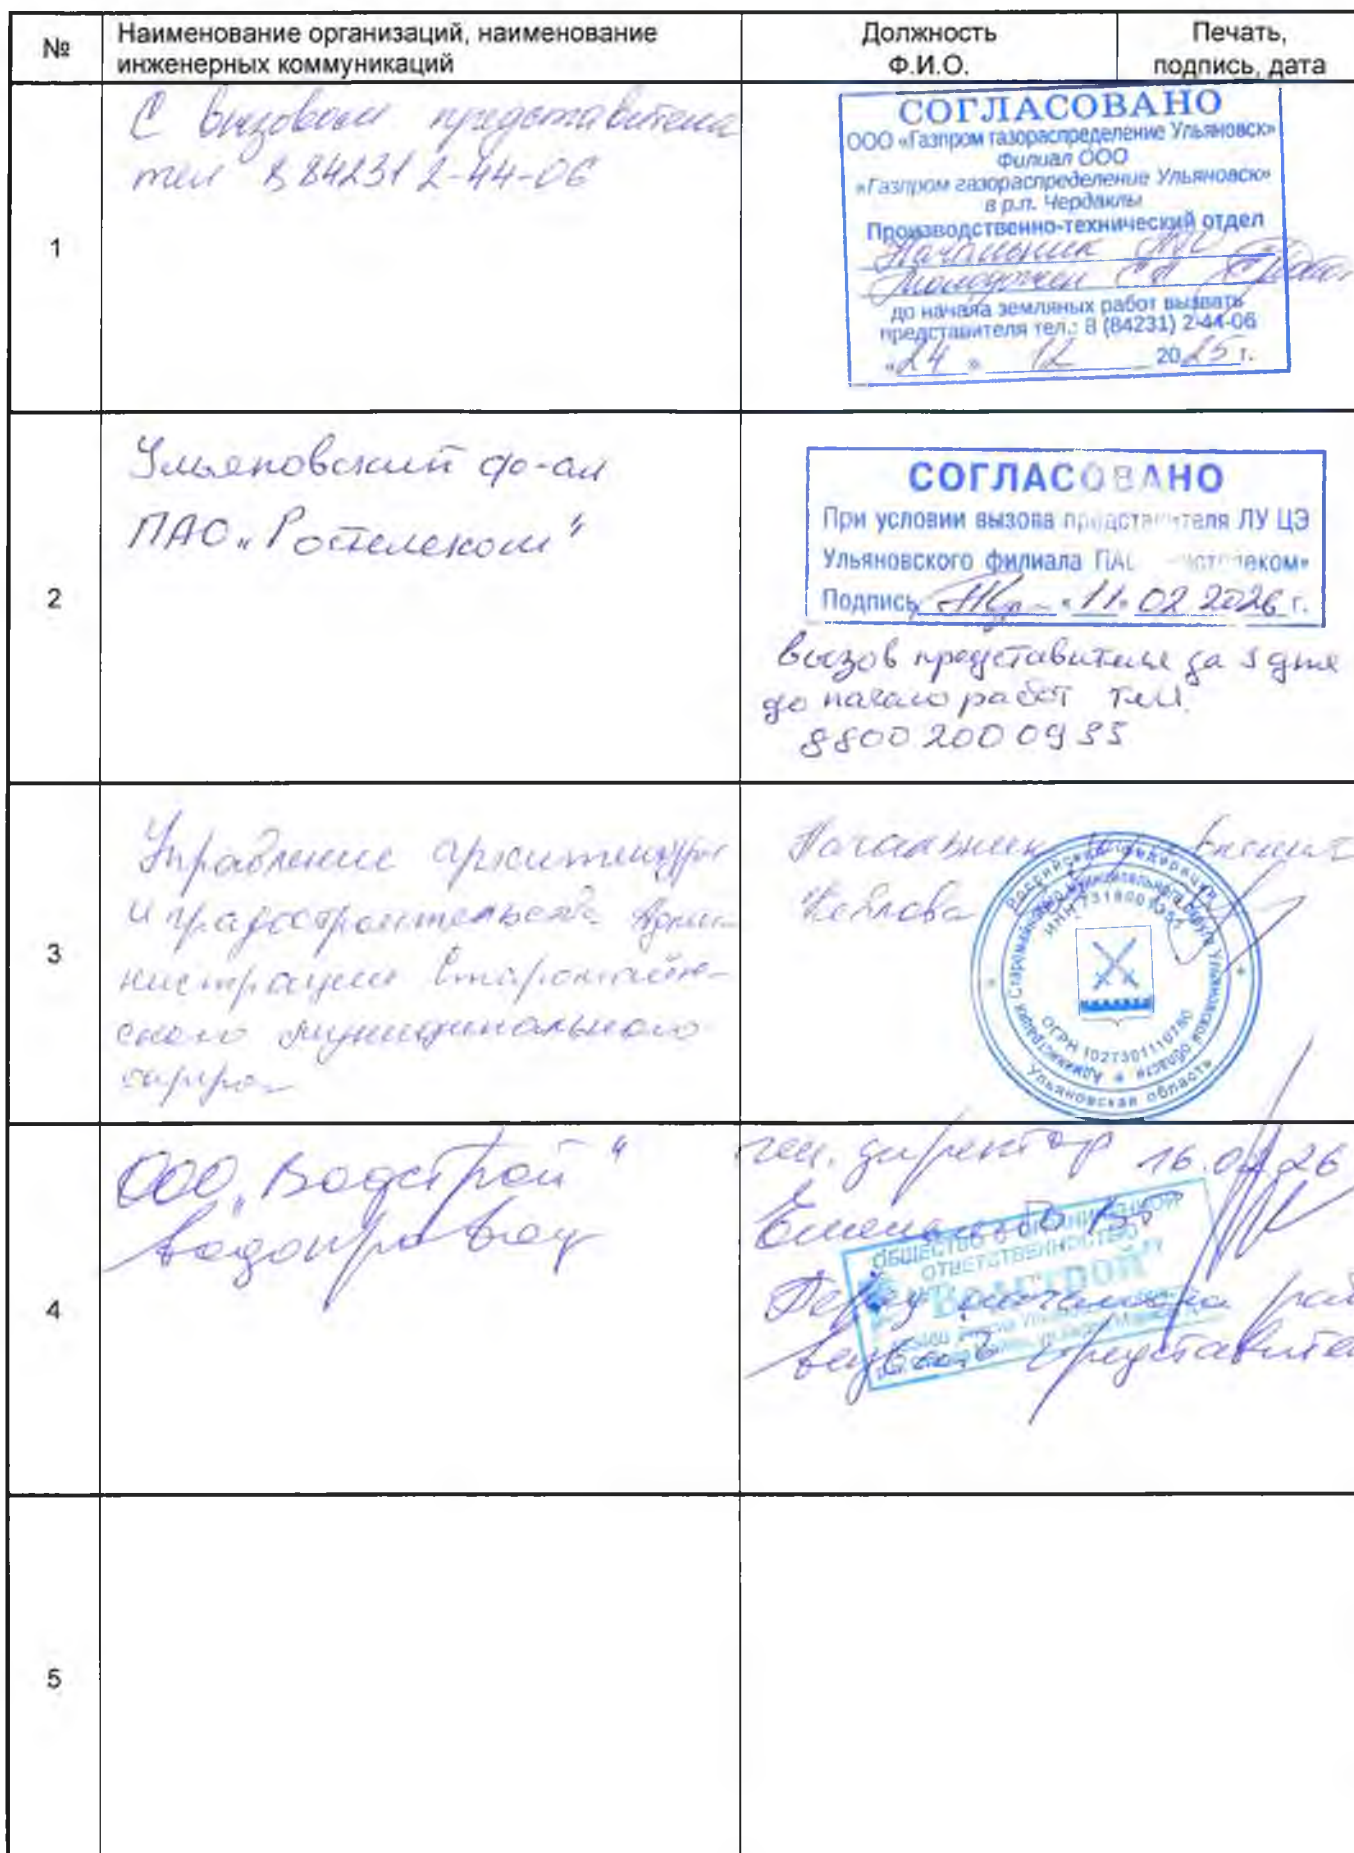 №
Наименование организаций, наименование
инженерных коммуникаций
Должность
Ф.И.О.
Печать,
подпись, дата
1
С вызовом представителя
тел 8 84231 2-44-06
СОГЛАСОВАНО
ООО «Газпром газораспределение Ульяновск»
Филиал ООО
«Газпром газораспределение Ульяновск»
в р.п. Чердаклы
Производственно-технический отдел
Начальник ПТО
до начала земляных работ вызвать
представителя тел.: 8 (84231) 2-44-06
«24» 12 2025 г.
2
Ульяновский ф-ал
ПАО „Ростелеком"
СОГЛАСОВАНО
При условии вызова представителя ЛУ ЦЭ
Ульяновского филиала ПАО «Ростелеком»
Подпись «11» 02 2026 г.
вызов представителя за 3 дня
до начало работ тел.
8800 200 09 33
3
Управление архитектуры
и градостроительства Адми-
нистрации Старомайн-
ского муниципального
округа
Начальник
Российская Федерация
Ульяновская область
Администрация Старомайнского муниципального округа Ульяновской области
ОГРН 1027301110780
4
ООО „Водстрой"
водопровод
ген. директор 16.02.26
ОБЩЕСТВО С ОГРАНИЧЕННОЙ
ОТВЕТСТВЕННОСТЬЮ
"ВОДСТРОЙ"
Перед началом
вызвать представите
5